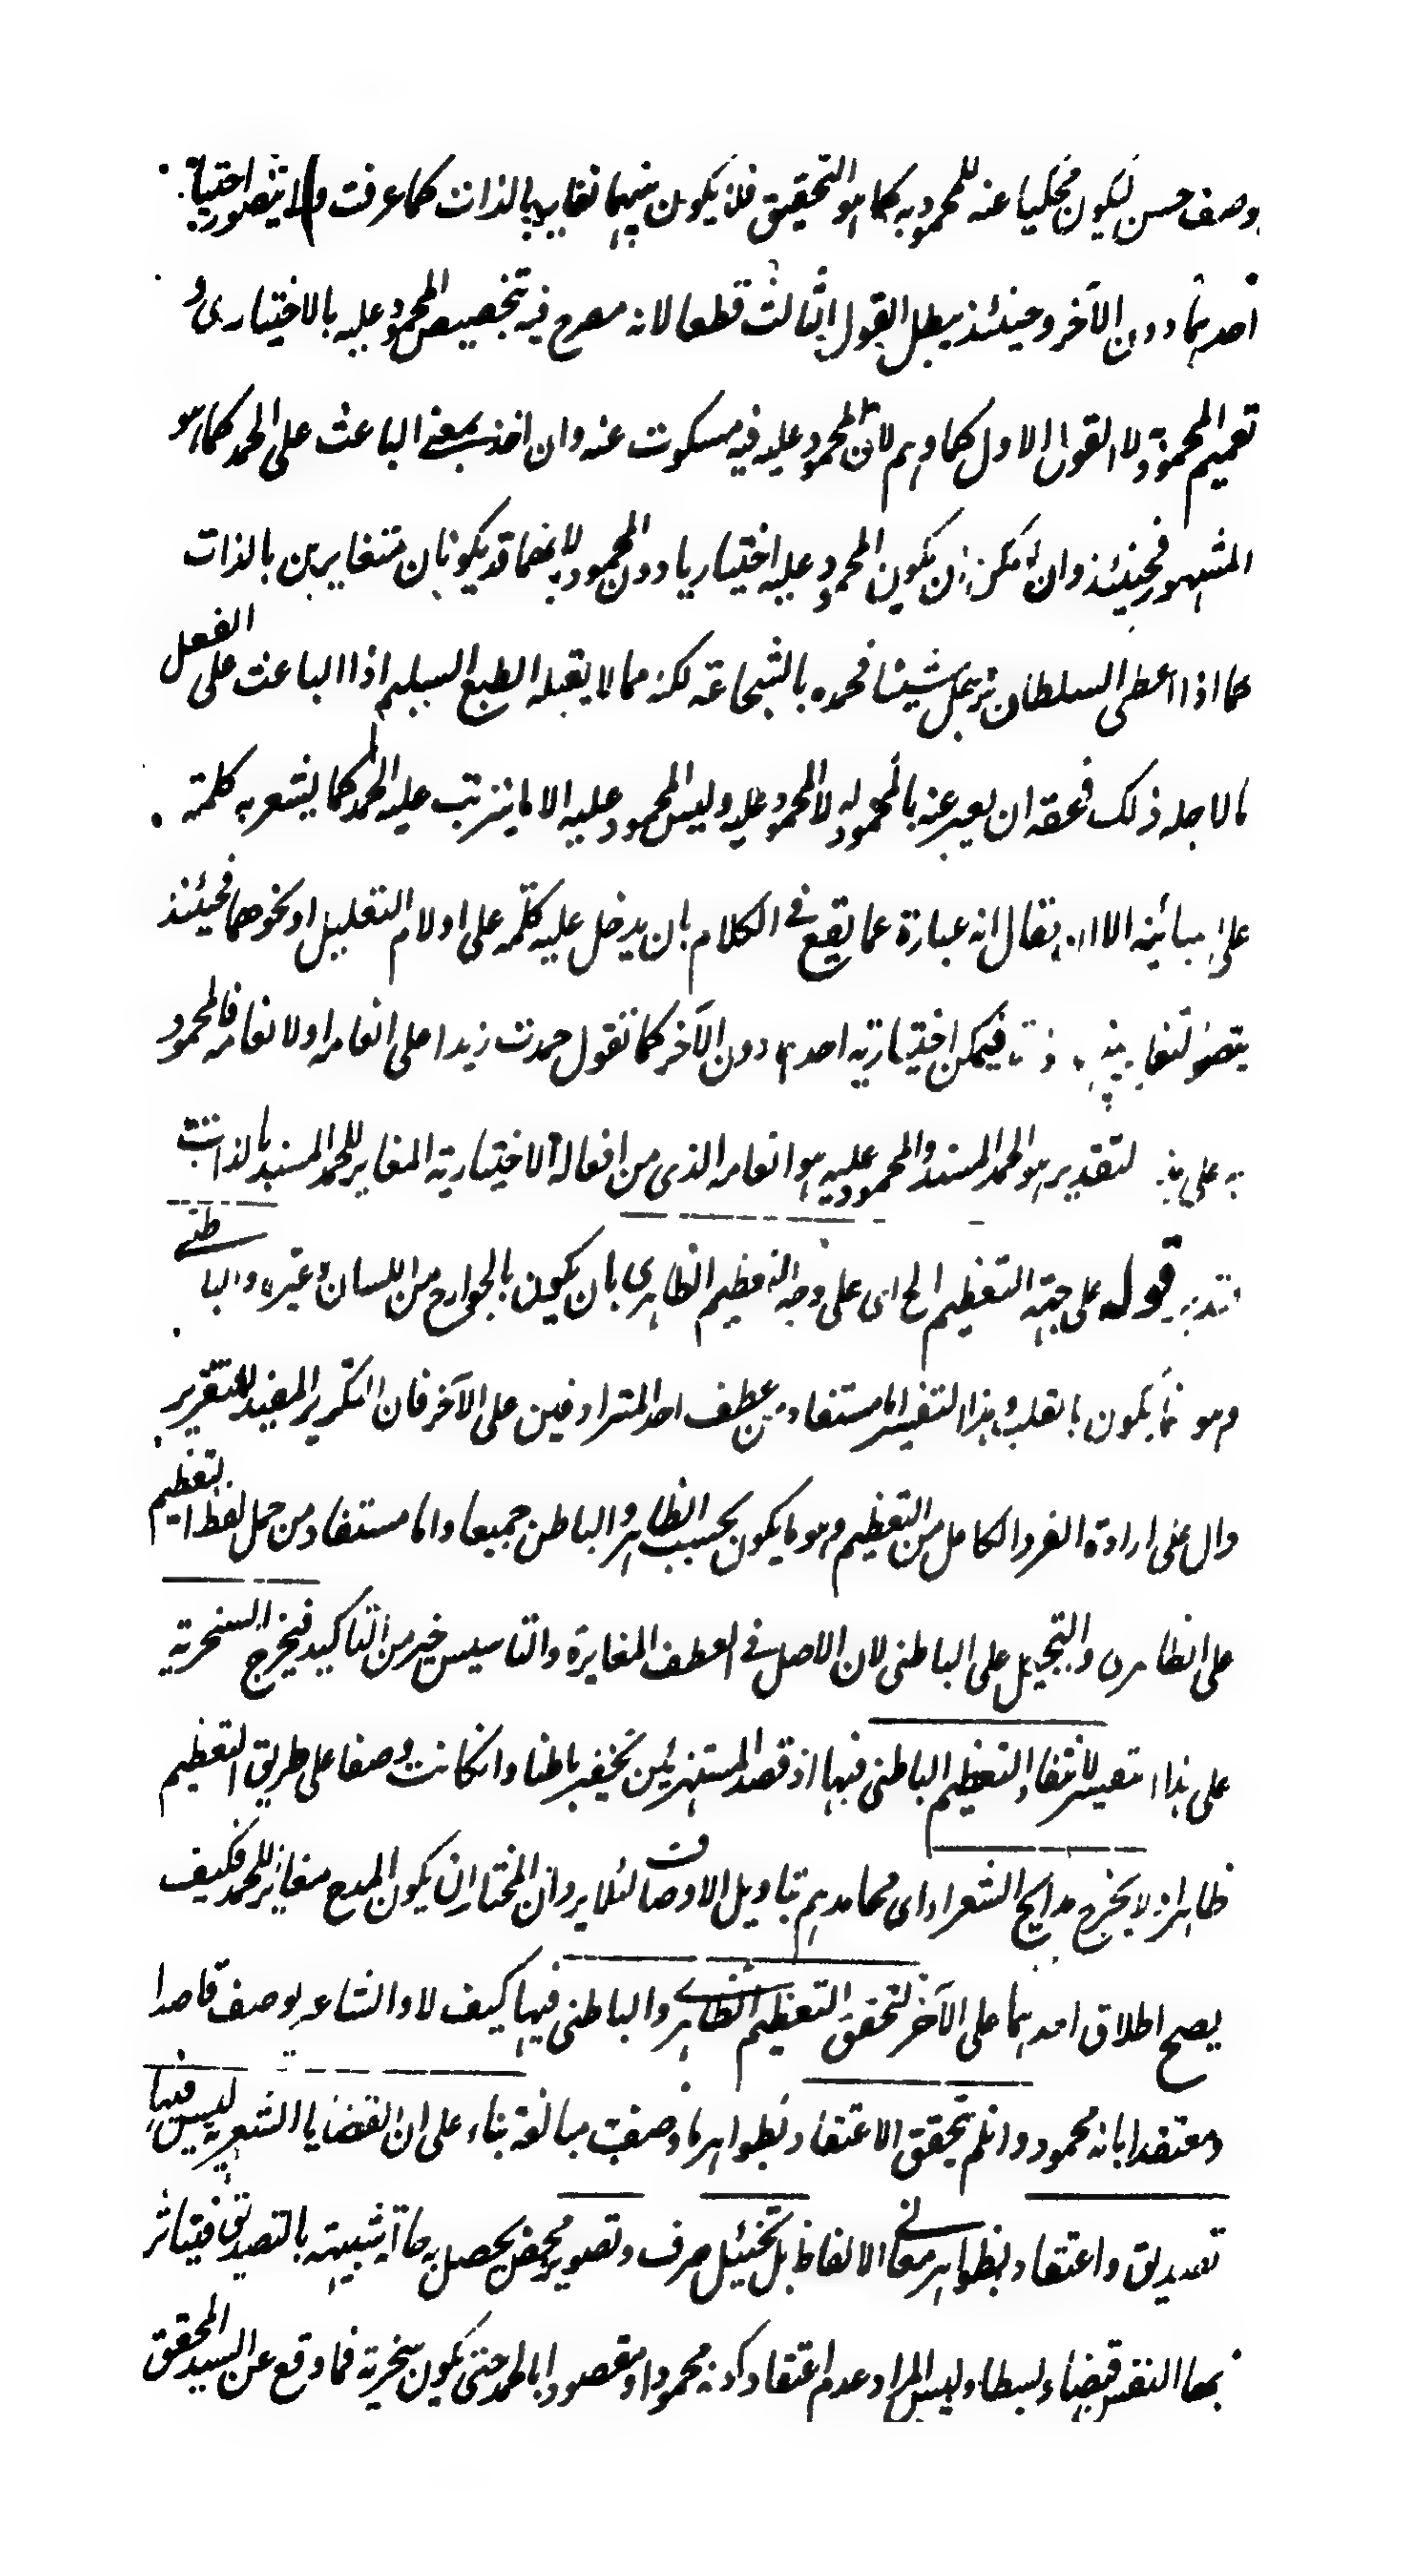 وصف حسن ليكون محكيا عنه للمحمود به كما هو التحقيق فلا يكون بينهما تغاير بالذات كما عرفت ولا يتصور اختيارية
احدهما دون الآخر وحينئذ يبطل القول الثالث قطعا لانه مصرح فيه بتخصيص المحمود عليه بالاختياري و
تعميم المحمود به ولا القول الاول كما وهم لان المحمود عليه فيه مسكوت عنه وان اخذ بمعنى الباعث على الحمد كما هو
المشهور فحينئذ وان امكن ان يكون المحمود عليه اختياريا دون المحمود به لانهما قد يكونان متغايرين بالذات
كما اذا اعطى السلطان رجل شيئا فحمده بالشجاعة لكنه مما لا يقبله الطبع السليم اذ الباعث على الفعل
ما لاجله ذلك فحقه ان يعبر عنه بالمحمود له لا المحمود عليه وليس المحمود عليه الا ما يترتب عليه الحمد كما يشعر به كلمة
على الا ان يقال انه عبارة عما يقع في الكلام بان يدخل عليه كلمة على او لام التعليل او نحوهما فحينئذ
يتصور فيمكن اختيارية احدهما دون الآخر كما تقول حمدت زيدا على انعامه او لانعامه فالمحمود
به على هذا التقدير هو الحمد المسند والمحمود عليه هو انعامه الذي من افعاله الاختيارية المغاير للحمد المسند بالذات
فتدبر قوله على جهة التعظيم الخ اي على وجه التعظيم الظاهري بان يكون بالجوارح من اللسان وغيره والباطني
وهو انما يكون بالقلب وهذا التفسير اما مستفاد من عطف احد المترادفين على الآخر فان التكرير المفيد للتقرير
دال على ارادة الفرد الكامل من التعظيم وهو ما يكون بحسب الظاهر والباطن جميعا واما مستفاد من حمل لفظ التعظيم
على الظاهري والتبجيل على الباطني لان الاصل في العطف المغايرة والتاسيس خير من التاكيد فيخرج السخرية
على هذا التفسير لانتفاء التعظيم الباطني فيها اذ قصد المستهزئين تحقير باطنا وانكانت وصفا على طريق التعظيم
ظاهرا ولا يخرج مدايح الشعراء اي محامدهم بتاويل الاوصاف لئلا يرد ان المختار ان يكون المدح مغايرا للحمد فكيف
يصح اطلاق احدهما على الآخر لتحقق التعظيم الظاهري والباطني فيها كيف لا والشاعر يوصف قاصدا
ومعتقدا بانه محمود وانلم يتحقق الاعتقاد بظواهر ما وصفت مبالغة بناء على ان القضايا الشعرية ليس فيها
تصديق واعتقاد بظواهر معاني الالفاظ بل تخئيل صرف وتصوير محض يحصل به حالة شبيهة بالتصديق فيتاثر
بها النفس قبضا وبسطا وليس المراد عدم اعتقاد كونه محمودا ومقصودا بالحمد حتى يكون سخرية فما وقع عن السيد المحقق